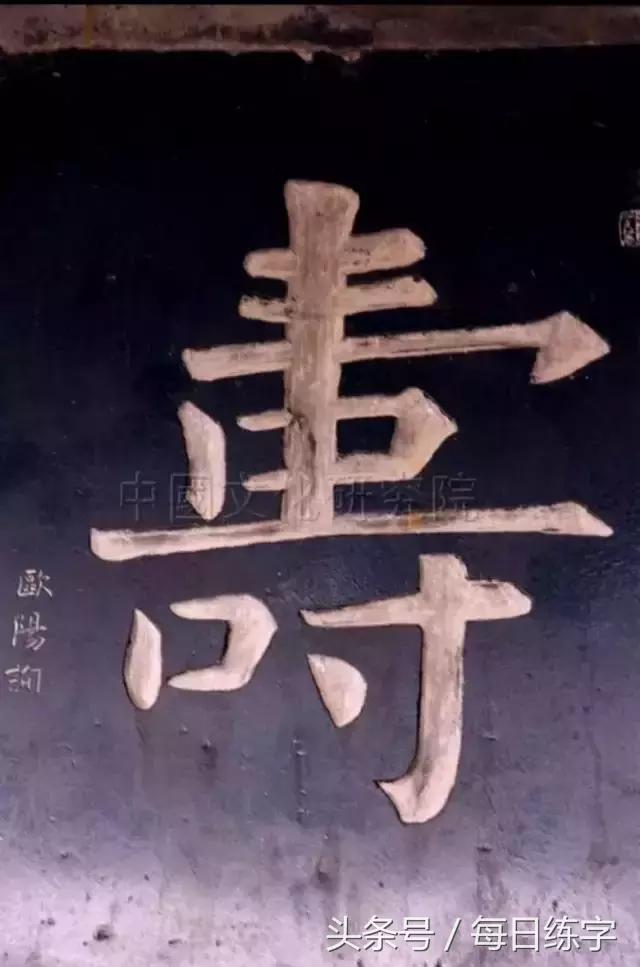 壽
中國文化研究院
歐陽詢
头条号 / 每日练字